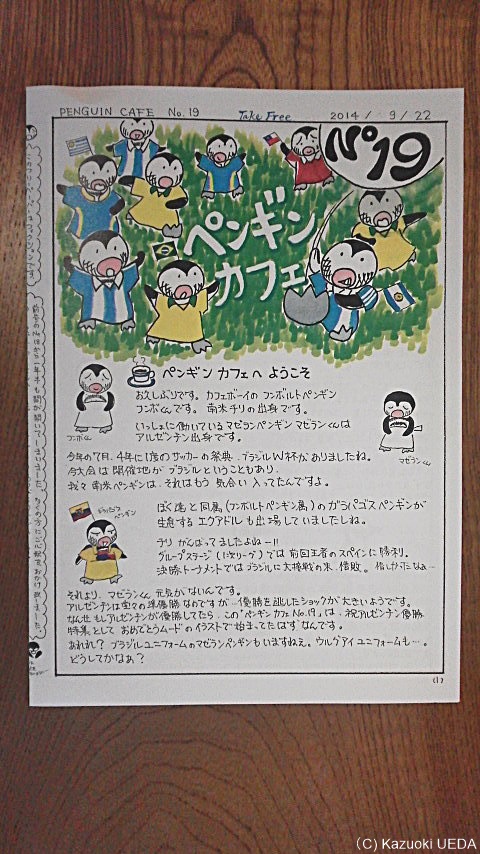 PENGUIN CAFE No.19 Take Free 2014/9/22
No 19
ペンギン
カフェ
ペンギン カフェへ ようこそ
お久しぶりです。カフェボーイの フンボルトペンギン
フンボくんです。南米チリの出身です。
いっしょに働いているマゼランペンギン マゼランくんは
アルゼンチン出身です。
フンボくん
マゼランくん
今年の7月、4年に1度のサッカーの祭典、ブラジルW杯がありましたね。
今大会は 開催地が ブラジルということもあり、
我々南米ペンギンは、それはもう 気合い入ってたんですよ。
ガラパゴス
ペンギン
ぼく達と同属(フンボルトペンギン属)のガラパゴスペンギンが
生息する エクアドルも出場していましたしね。
チリ がんばってましたよねー!!
グループステージ(1次リーグ)では前回王者のスペインに勝利。
決勝トーナメントではブラジルに大接戦の末、惜敗。惜しかったなぁ…
それより、マゼランくん 元気がないんです。
アルゼンチンは堂々の準優勝なのですが…優勝を逃したショックが大きいようです。
なんせ もしアルゼンチンが優勝してたら、この"ペンギンカフェNo.19"は、祝アルゼンチン優勝
特集として おめでとうムードのイラストで始まってたはずなんです。
あれれ? ブラジルユニフォームのマゼランペンギンもいますねぇ。ウルグアイユニフォームも…。
どうしてかなぁ?
(1)
前号のNo.18から一年半も間が開いてしまいました。多くの方にご心配をおかけ致しました。
(C) Kazuoki UEDA